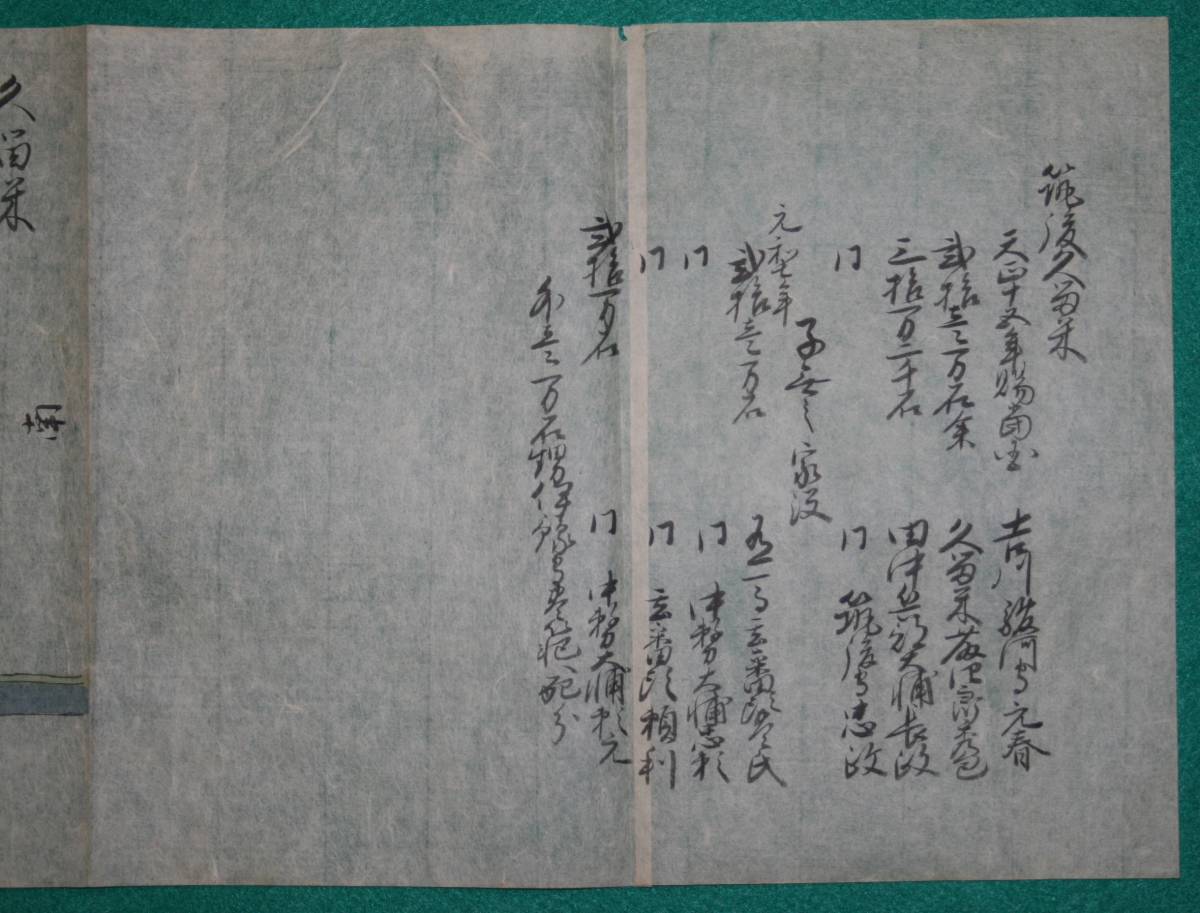 筑後久留米
天正十五年賜当国 吉川駿河守元春
弐拾壱万石余 久留米藤四郎秀包
三拾一万二千石 田中兵部大輔長政
同 同 筑後守忠政
子無之家没
元和七年
弐拾壱万石 有馬玄蕃頭豊氏
同 同 中務大輔忠頼
同 同 玄蕃頭頼利
弐拾一万石 同 中務大輔頼元
外壱万石甥伊豫守豊範へ配分
久留米
南